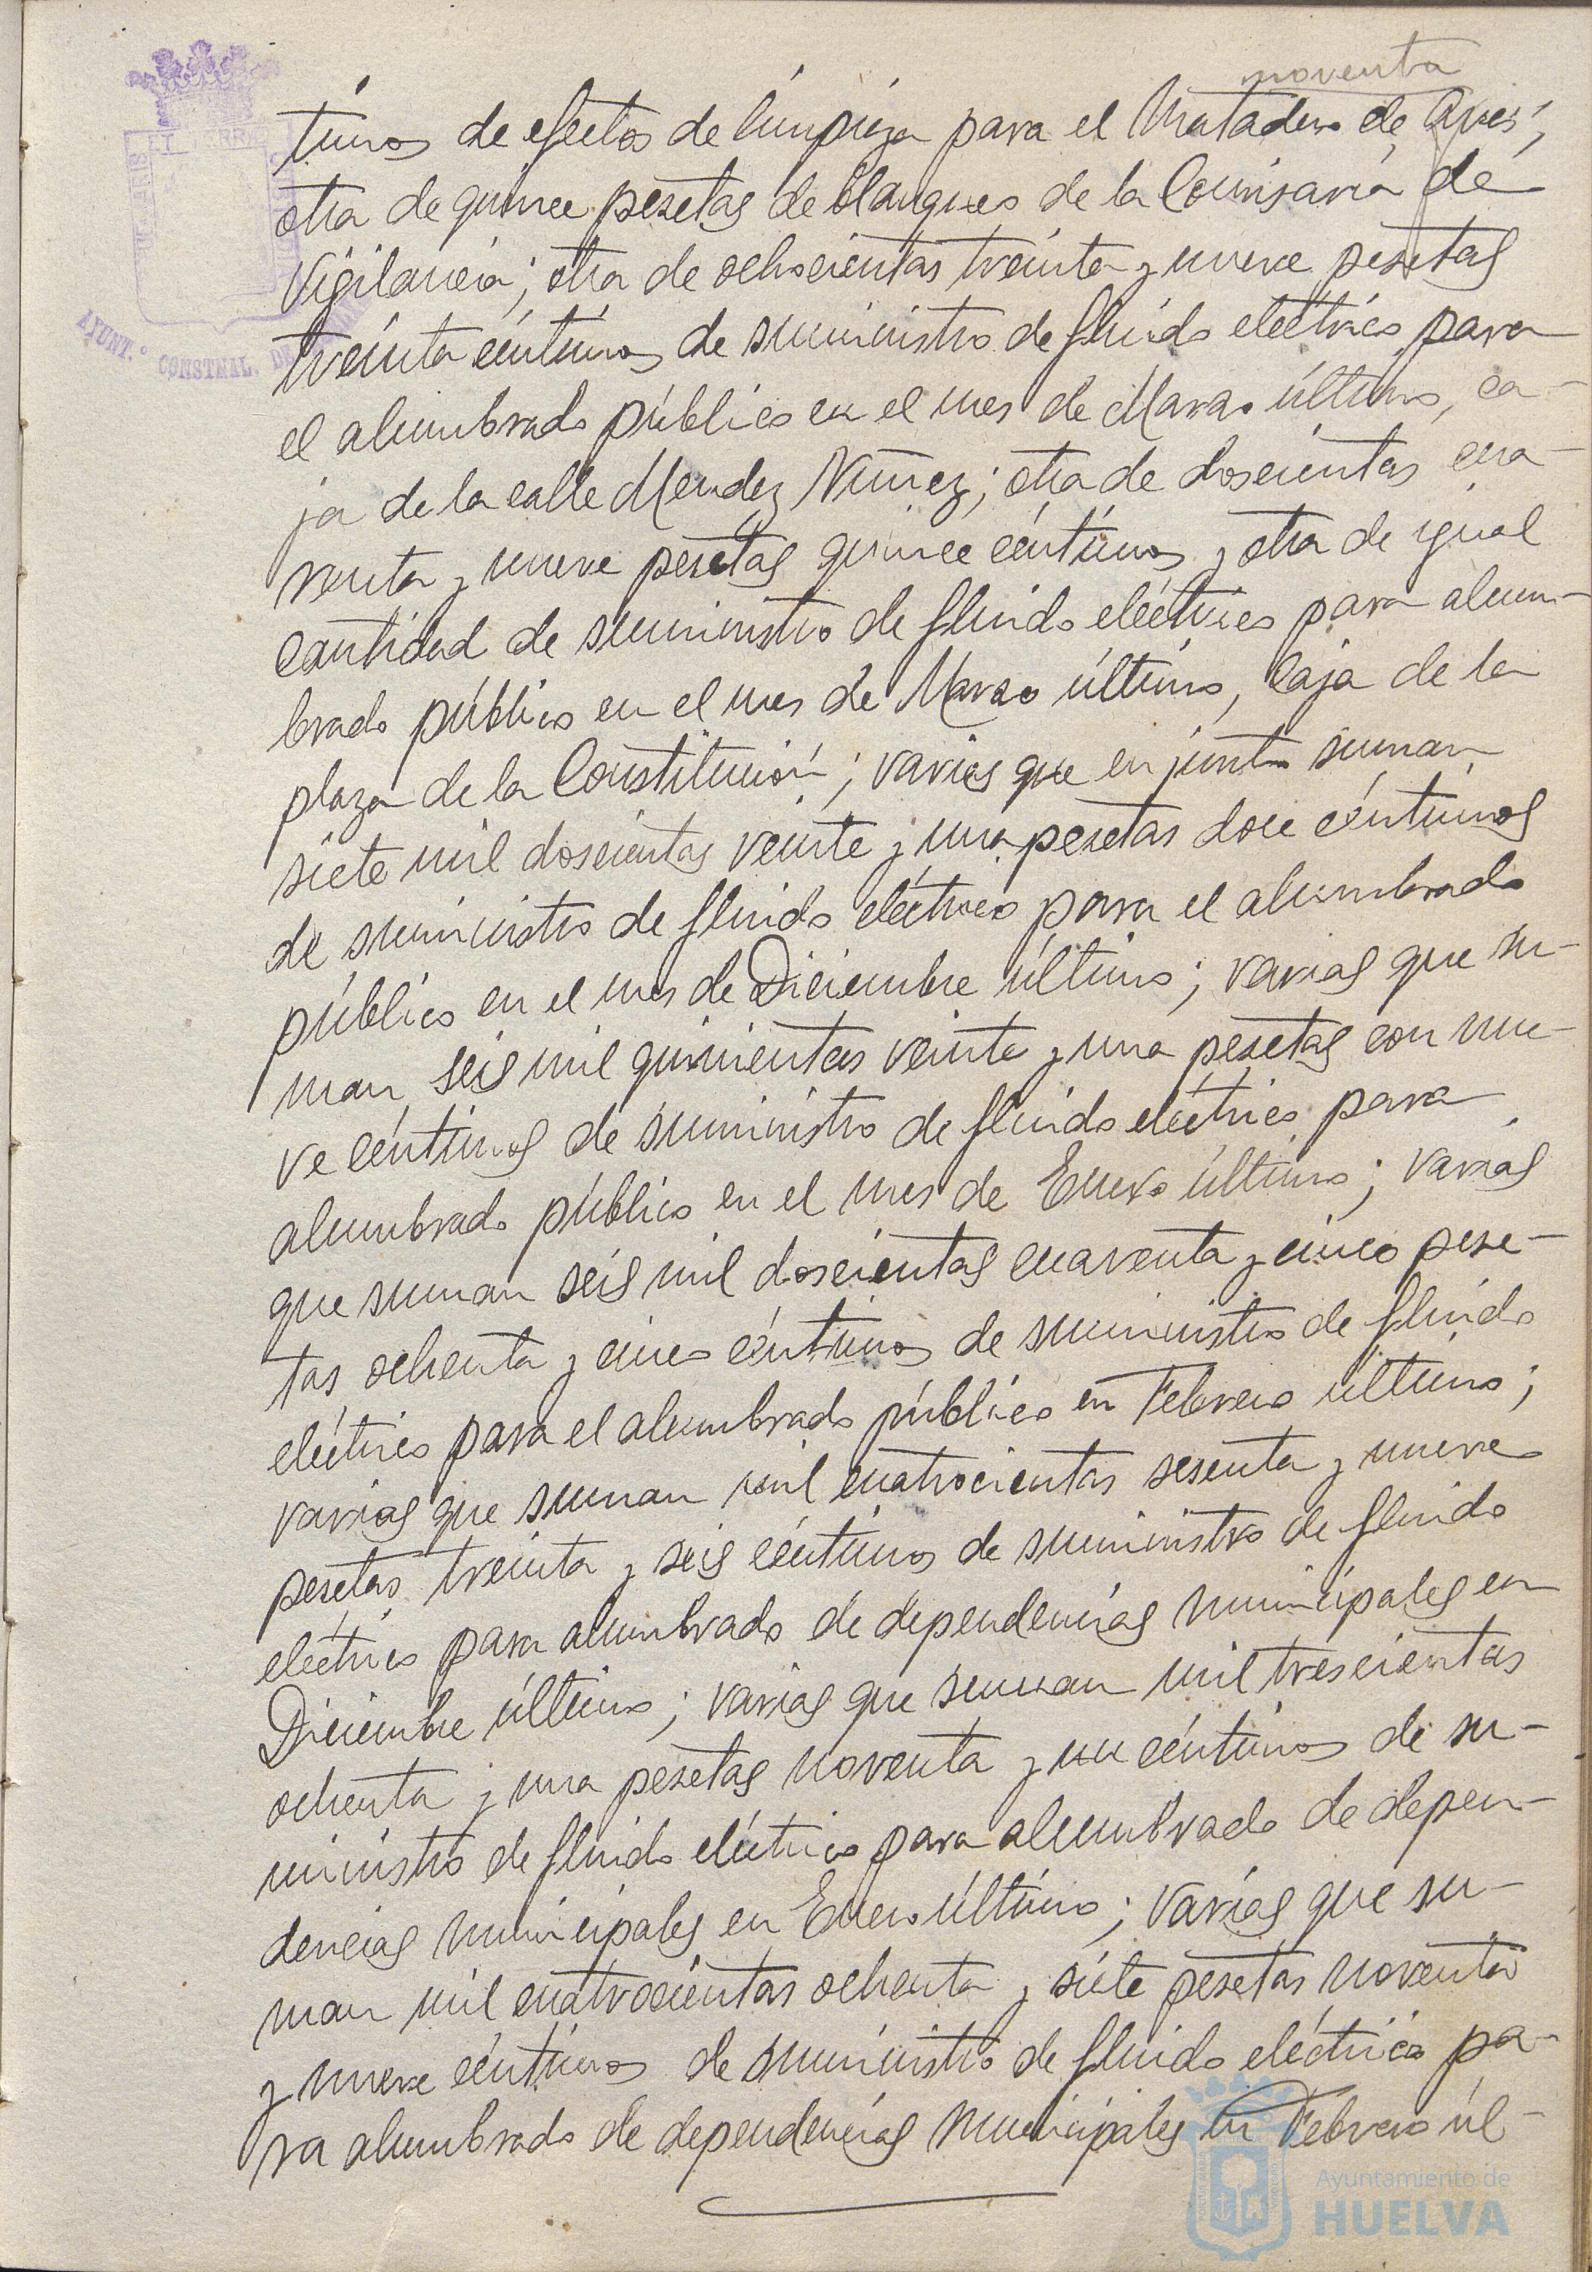 noventa
timos de efectos de limpieza para el Matadero de Aves;
otra de quince pesetas de blanqueo de la Comisaría de
Vigilancia; otra de ochocientas treinta y nueve pesetas
treinta céntimos de suministro de fluido eléctrico para
el alumbrado público en el mes de Marzo último, ca-
ja de la calle Mendez Núñez; otra de doscientas cua-
renta y nueve pesetas quince céntimos y otra de igual
cantidad de suministro de fluido eléctrico para alum-
brado público en el mes de Marzo último, Caja de la
plaza de la Constitución; varias que en junto suman
siete mil doscientas veinte y una pesetas doce céntimos
de suministro de fluido eléctrico para el alumbrado
público en el mes de Diciembre último; varias que su-
man seis mil quinientas veinte y una pesetas con nue-
ve céntimos de suministro de fluido eléctrico para
alumbrado público en el mes de Enero último; varias
que suman seis mil doscientas cuarenta y cinco pese-
tas ochenta y cinco céntimos de suministro de fluido
eléctrico para el alumbrado público en Febrero último;
varias que suman mil cuatrocientas sesenta y nueve
pesetas treinta y seis céntimos de suministro de fluido
eléctrico para alumbrado de dependencias municipales en
Diciembre último; varias que suman mil trescientas
ochenta y una pesetas noventa y un céntimos de su-
ministro de fluido eléctrico para alumbrado de depen-
dencias municipales en Enero último; varias que su-
man mil cuatrocientas ochenta y siete pesetas noventa
y nueve céntimos de suministro de fluido eléctrico pa-
ra alumbrado de dependencias municipales en Febrero úl-
AYUNT.º CONSTNAL. DE
Ayuntamiento de
HUELVA